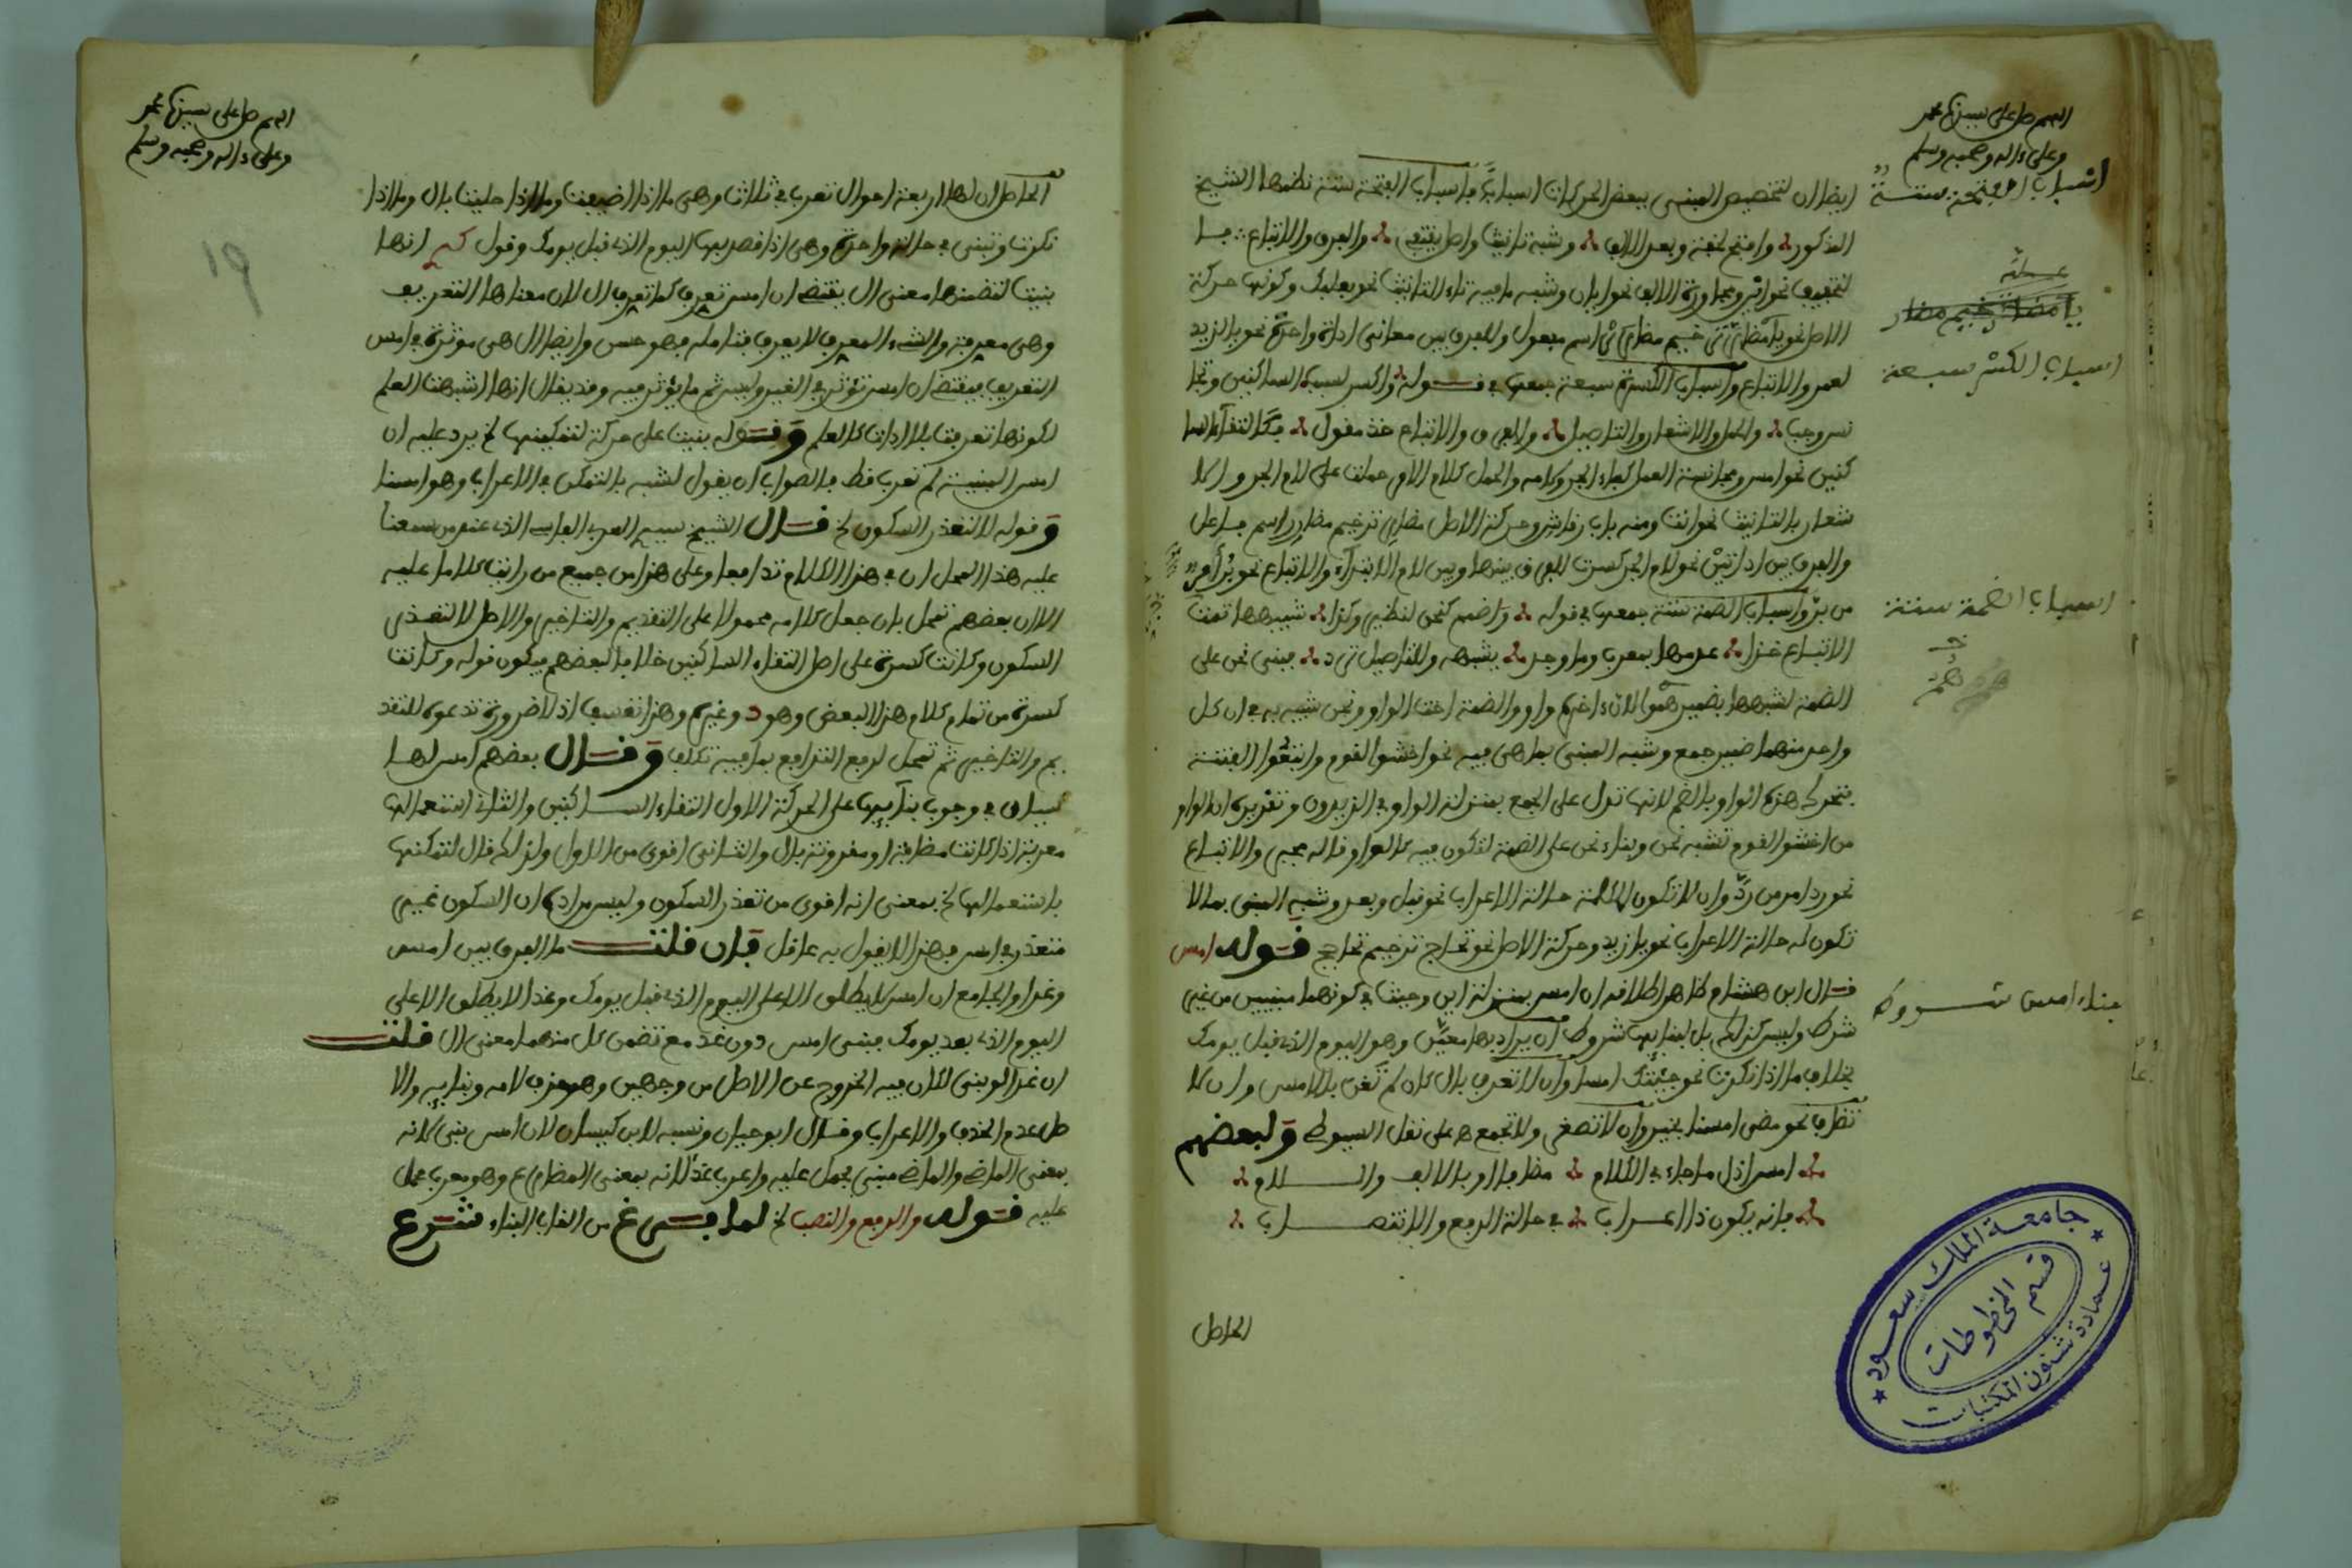 اللهم صل على سيدنا محمد
وعلى ءاله وصحبه وسلم
ايضا ان لتخصيص المبنى ببعض الحركات اسبابا فاسباب الفتحة ستة نظمها الشيخ
المذكور وافتح لخفة وبعد الالف وشبه تانيث واصل يقتفى والفرق والاتباع فا
لتخفيف نحو اين ومجاورة الالف نحو ايان وشبه ما فيه تاء التانيث نحو بعلبك وكونها حركة
الاصل نحو يا مضار ترخيم مضارر اسم مفعول والفرق بين معانى اداة واحدة نحو يا لزيد
لعمرو والاتباع واسباب الكسرة سبعة جمعها فى قوله واكسر لسبب الساكنين وتجا
نسر وجبا والحمل والاشعار والتاصيل والفرق والاتباع خذ مقول فكالتقاء السا
كنين نحو امس ومجانسة العمل كباء الجر وكلامه والحمل كلام الامر حملت على لام الجر والا
شعار بالتانيث نحو انت ومنه باب رقاش وحركة الاصل مضار ترخيم مضارر اسم فاعل
والفرق بين اداتين نحو لام الجر كسرت للفرق بينها وبين لام الابتداء والاتباع نحو
واسباب الضمة ستة جمعها فى قوله واضمم كنحن لنظير وكذا شبيهها تمت
الاتباع غذا عدمها يعرب وما وجد يشبهه والتاصيل ترد فبنى نحن على
الضمة لشبهها بضمير همو الان ءاخره واو والضمة اخت الواو ونحن شبيه به فى ان كل
واحد منهما ضمير جمع وشبه المبنى بما هى فيه نحو اخشوا القوم وابتغوا الفتنة
بتحرك هذه الواو بالضم لانها تدل على الجمع بمنزلة الواو فى الزيدون وتقديره ان الواو
من اخشوا القوم تشبه نحن وبناء نحن على الضمة لتكون فيه كالواو قاله والاتباع
نحو رد امر من رد وان لا تكون للكلمة حالة الاعراب نحو قبل وبعد وشبه المبنى بما لا
تكون له حالة الاعراب نحو يا زيد وحركة الاصل نحو تحاج ترخيم تحاجج قوله امس
قال ابن هشام ظاهر اطلاقه ان امس بمنزلة اين وحيث فى كونهما مبنيين من غير
شرط وليس كذلك بل لبنائها شروط ان يراد بها معين وهو اليوم الذى قبل يومك
بخلاف ما اذا نكرت نحو جئتك امسا وان لا تعرف بال كان لم تغن بالامس وان لا
تضاف نحو مضى امسنا بخير وان لا تصغر ولا تجمع على نقل السيوطى ولبعضهم
امس اذا ما جاء فى الكلام مضافا او بالالف واللام
فانه يكون ذا اعراب فى حالة الرفع والانتصاب
الحاصل
اسباب الفتحة ستة
علة
اسباب الكسر سبعة
اسباب الضمة ستة
بناء امس شروط
جامعة الملك سعود
قسم المخطوطات
عمادة شئون المكتبات
اللهم صل على سيدنا محمد
وعلى ءاله وصحبه وسلم
١٩
الحاصل ان لها اربعة احوال تعرب فى ثلاث وهى ما اذا اضيفت وما اذا حليت بال وما اذا
نكرت وتبنى فى حالة واحدة وهى اذا قصد بها اليوم الذى قبل يومك وقول انها
بنيت لتضمنها معنى ال يقتضى ان امس تعرف كما تعرف ال لان معناها التعريف
وهى معرفة والشىء المعرف لا يعرف فتامله فهو حسن وايضا ال هى موثرة فى امس
التعريف فيقتضى ان امس تؤثر فى الغير وليس ثم ما يؤثر فيه وقد يقال انها اشبهت العلم
لكونها تعرفت بلا اداة كالعلم وقوله بنيت على حركة لتمكينها الخ يرد عليه ان
امس المبنية لم تعرب قط فالصواب ان يقول لشبه بالتمكن فى الاعراب وهو امسنا
وقوله لا لتعذر السكون الخ قال الشيخ سيدى العربى الفاسى الذى عند من سمعنا
عليه هذا المحل ان فى هذا الكلام تدافعا وعلى هذا من جميع من رايت كلاما عليه
الا ان بعضهم تمحل بان جعل كلامه محمولا على التقديم والتاخير والاصل لا لتعذر
السكون وكانت كسرة على اصل التقاء الساكنين خلافا لبعضهم فيكون قوله وكانت
كسرة من تمام كلام هذا البعض وهو وغيره وهذا تعسف اذ لا ضرورة تدعو للتقد
يم والتاخير ثم تمحل لرفع التدافع بما فيه تكلف وقال بعضهم امس لها
سببان فى وجوب بنائها على الحركة الاول التقاء الساكنين والثانى استعمالها
معربة اذا كانت مضافة او مقرونة بال والثانى اقوى من الاول ولذلك قال لتمكنها
باستعمالها الخ بمعنى انه اقوى من تعذر السكون وليس مراده ان السكون غير
متعذر فى امس فهذا لا يقول به عاقل فان قلت ما الفرق بين امس
وغدا والجامع ان امس لا يطلق الا على اليوم الذى قبل يومك وغدا لا يطلق الا على
اليوم الذى بعد يومك فبنى امس دون غد مع تضمن كل منهما معنى ال قلت
ان غدا لو بنى لكان فيه الخروج عن الاصل من وجهين وهو حذف لامه وبنائه والا
صل عدم الحذف والاعراب وقال ابو حيان ونسبه لابن كيسان لان امس بنى لانه
بمعنى الماضى والماضى مبنى فحمل عليه واعرب غد لانه بمعنى المضارع وهو معرب فحمل
عليه قوله والرفع والنصب الخ لما فرغ من القاب البناء شرع